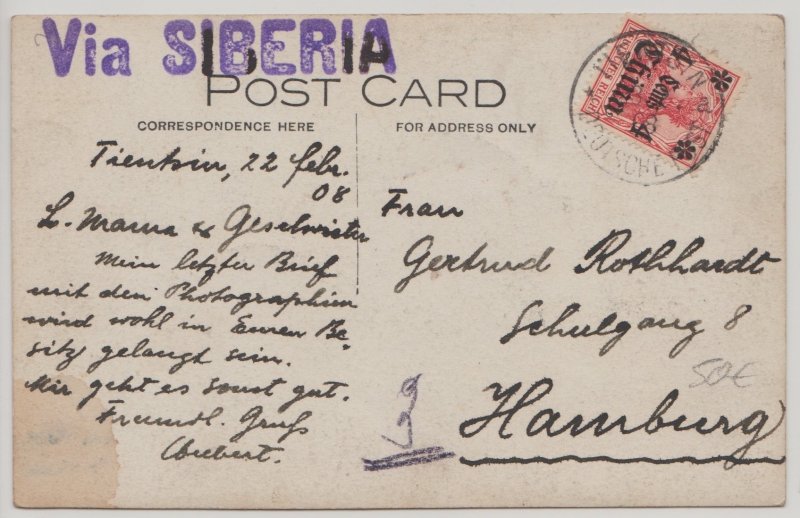 Via SIBERIA
POST CARD
CORRESPONDENCE HERE
FOR ADDRESS ONLY
Tientsin, 22 febr.
08
L. Mama & Geschwister
Mein letzter Brief
mit den Photographien
wird wohl in Euren Be-
sitz gelangt sein.
Mir geht es sonst gut.
Freundl. Gruß
Frau
Gertrud Rothhardt
Schulgang 8
Hamburg
50€
China
4
4
DEUTSCHE
REICH